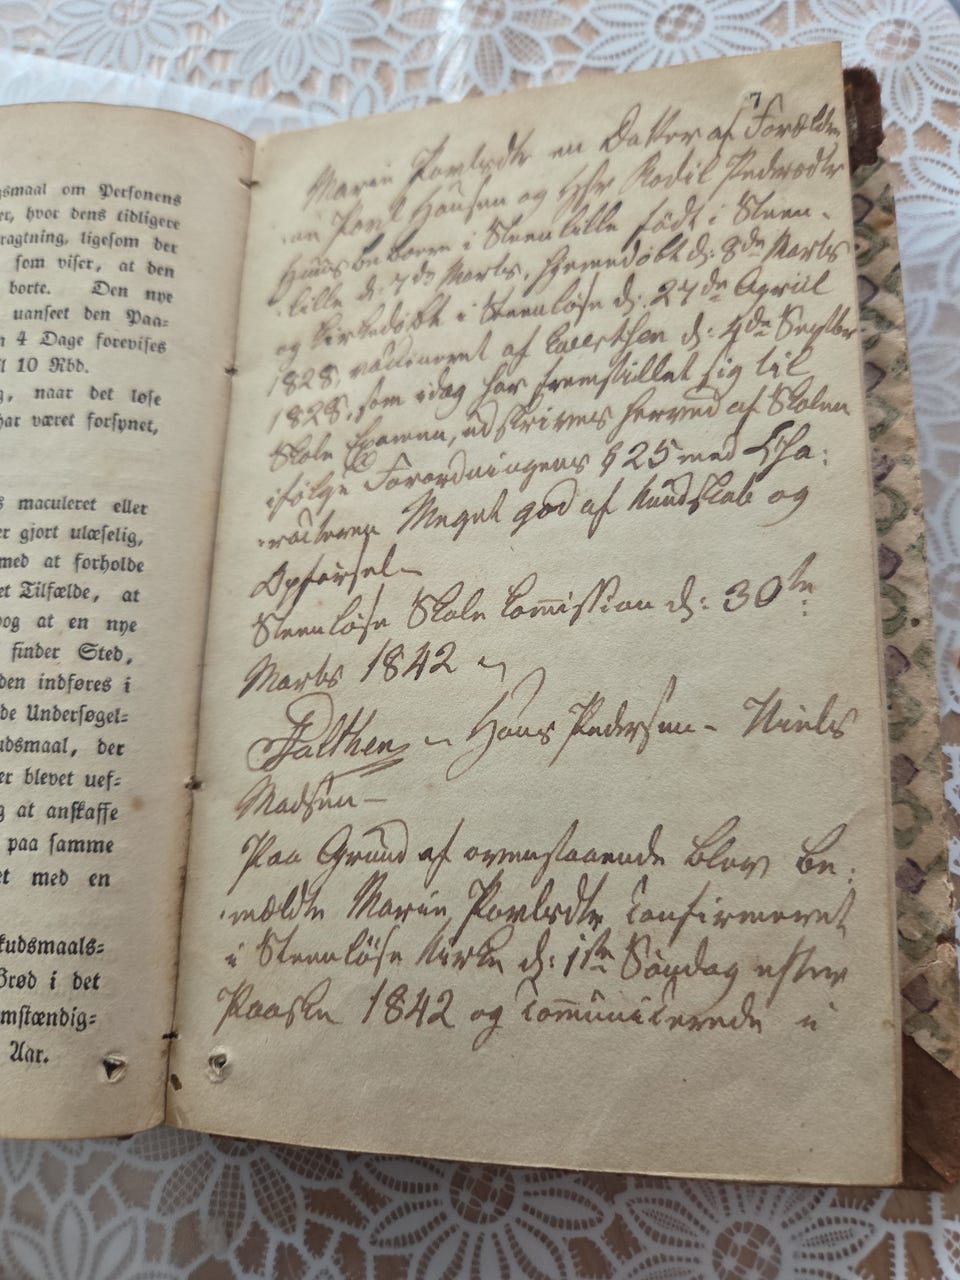 gsmaal om Personens
er, hvor dens tidligere
ragtning, ligesom der
som viser, at den
borte. Den nye
uanseet den Paa-
n 4 Dage forevises
il 10 Rbd.
g, naar det løse
har været forsynet,
s maculeret eller
er gjort ulæselig,
med at forholde
et Tilfælde, at
bog at en nye
finder Sted,
den indføres i
de Undersøgel-
udsmaal, der
er blevet uef-
g at anskaffe
paa samme
et med en
kudsmaals-
Brød i det
mstændig-
Aar.
7
Marie Povlsdtr en Datter af Forældre
Povl Hansen og Bodil Pedersdtr
Huusbeboere i Steenlille født i Steen-
lille d: 7de Marts, hjemedøbt d: 8de Marts
og kirkedøbt i Steenløse d: 27de April
1828, vaccineret af d: 4de Septbr
1828, som idag har fremstillet sig til
Skole Examen, udskrives herved af Skolen
ifølge Forordningens § 25 med Cha:
racteren Meget god af Kundskab og
Opførsel-
Steenløse Skole Commission d: 30te
Marts 1842
Balthen Hans Pedersen- Niels
Madsen-
Paa Grund af ovenstaaende blev be:
mældte Marie Povlsdtr Confirmeret
i Steenløse Kirke d: 1ste Søndag efter
Paaske 1842 og Communicerede i